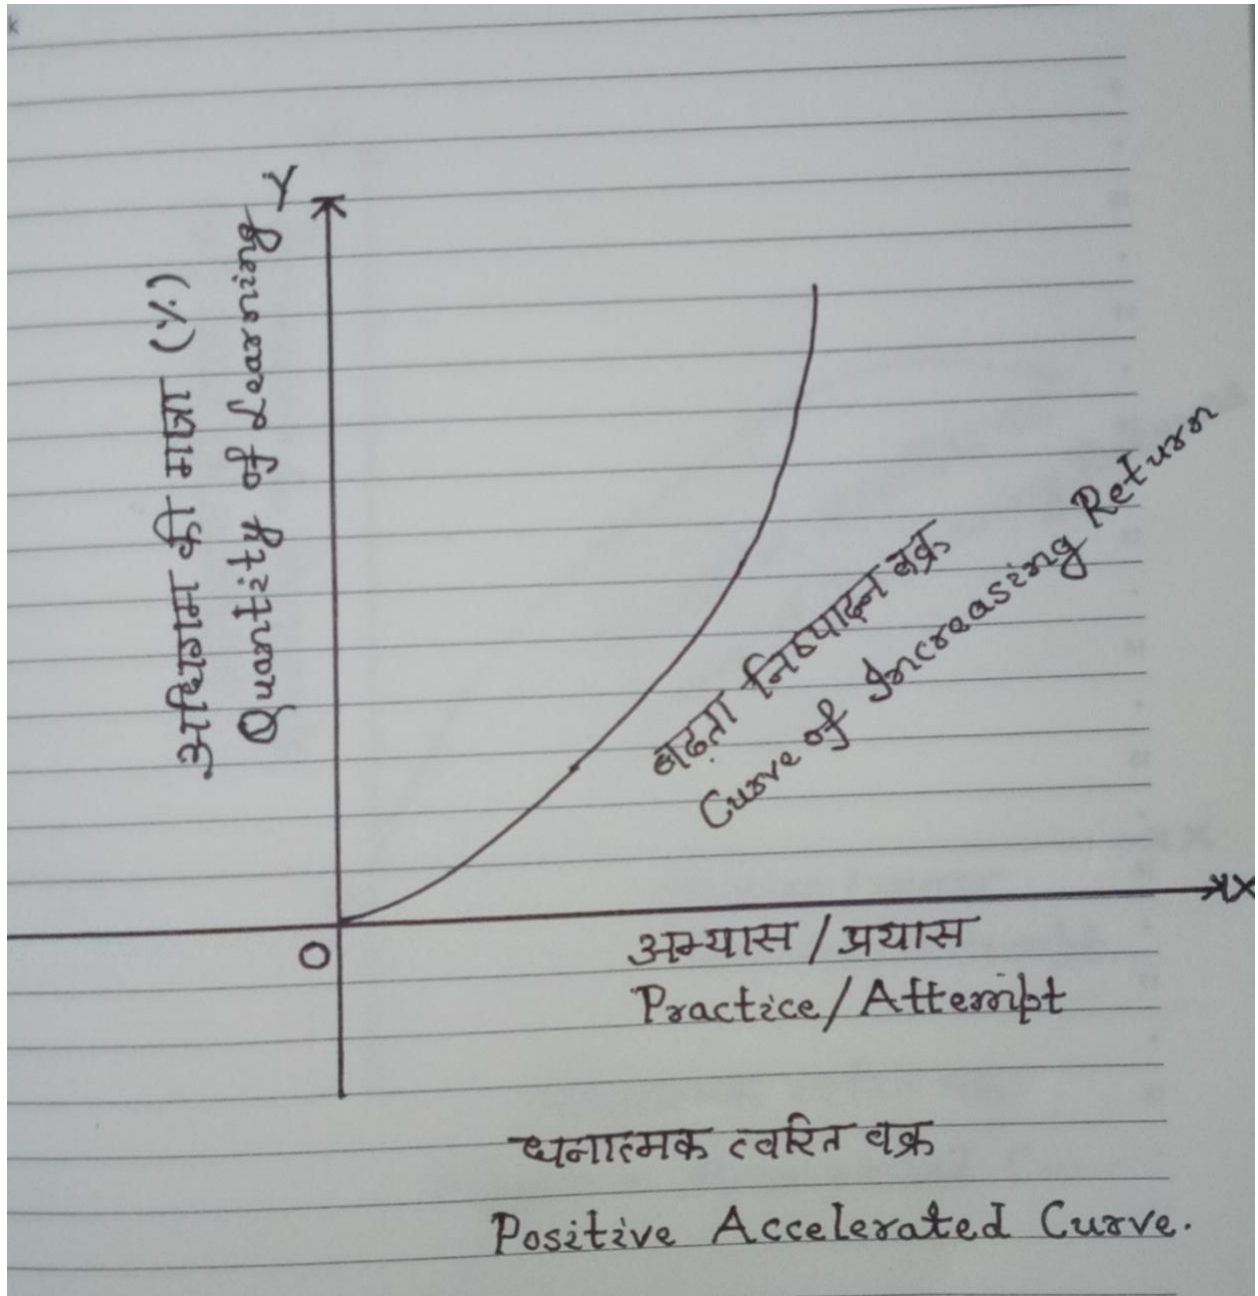 Y
Quantity of Learning
अधिगम की मात्रा (%)
बढ़ता निष्पादन वक्र
Curve of Increasing Return
X
O
अभ्यास / प्रयास
Practice / Attempt
धनात्मक त्वरित वक्र
Positive Accelerated Curve.